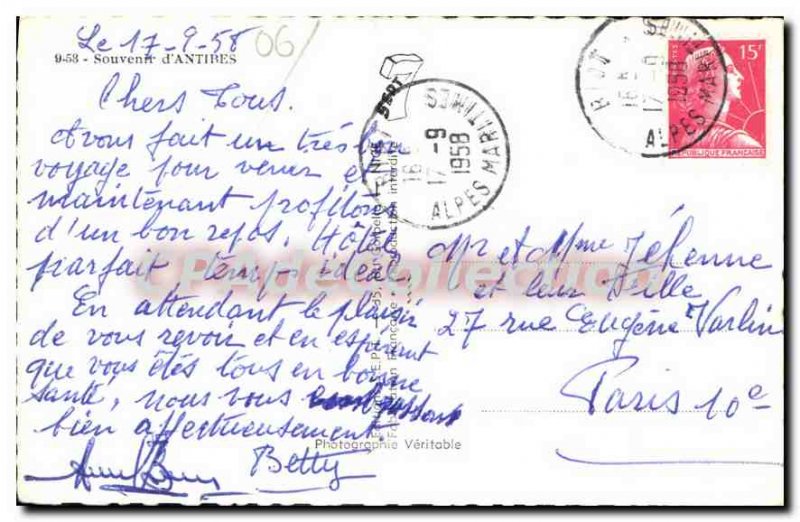 Le 17-9-58
06
9-58 - Souvenir d'ANTIBES
Chers Tous.
Avons fait un très bon
voyage pour venir et
maintenant profitons
d'un bon repos. Hôtel
parfait, temps idéal.
En attendant le plaisir
de vous revoir et en espérant
que vous êtes tous en bonne
santé, nous vous embrassons
bien affectueusement.
Betty
Photographie Véritable
BIOT
17 -9
1958
ALPES MARITIMES
BIOT
17 -9
1958
ALPES MARITIMES
15F
REPUBLIQUE FRANÇAISE
Mr et Mme Jéhenne
et leur fille
27 rue Eugène Varlin
Paris 10e
CPAdecollection